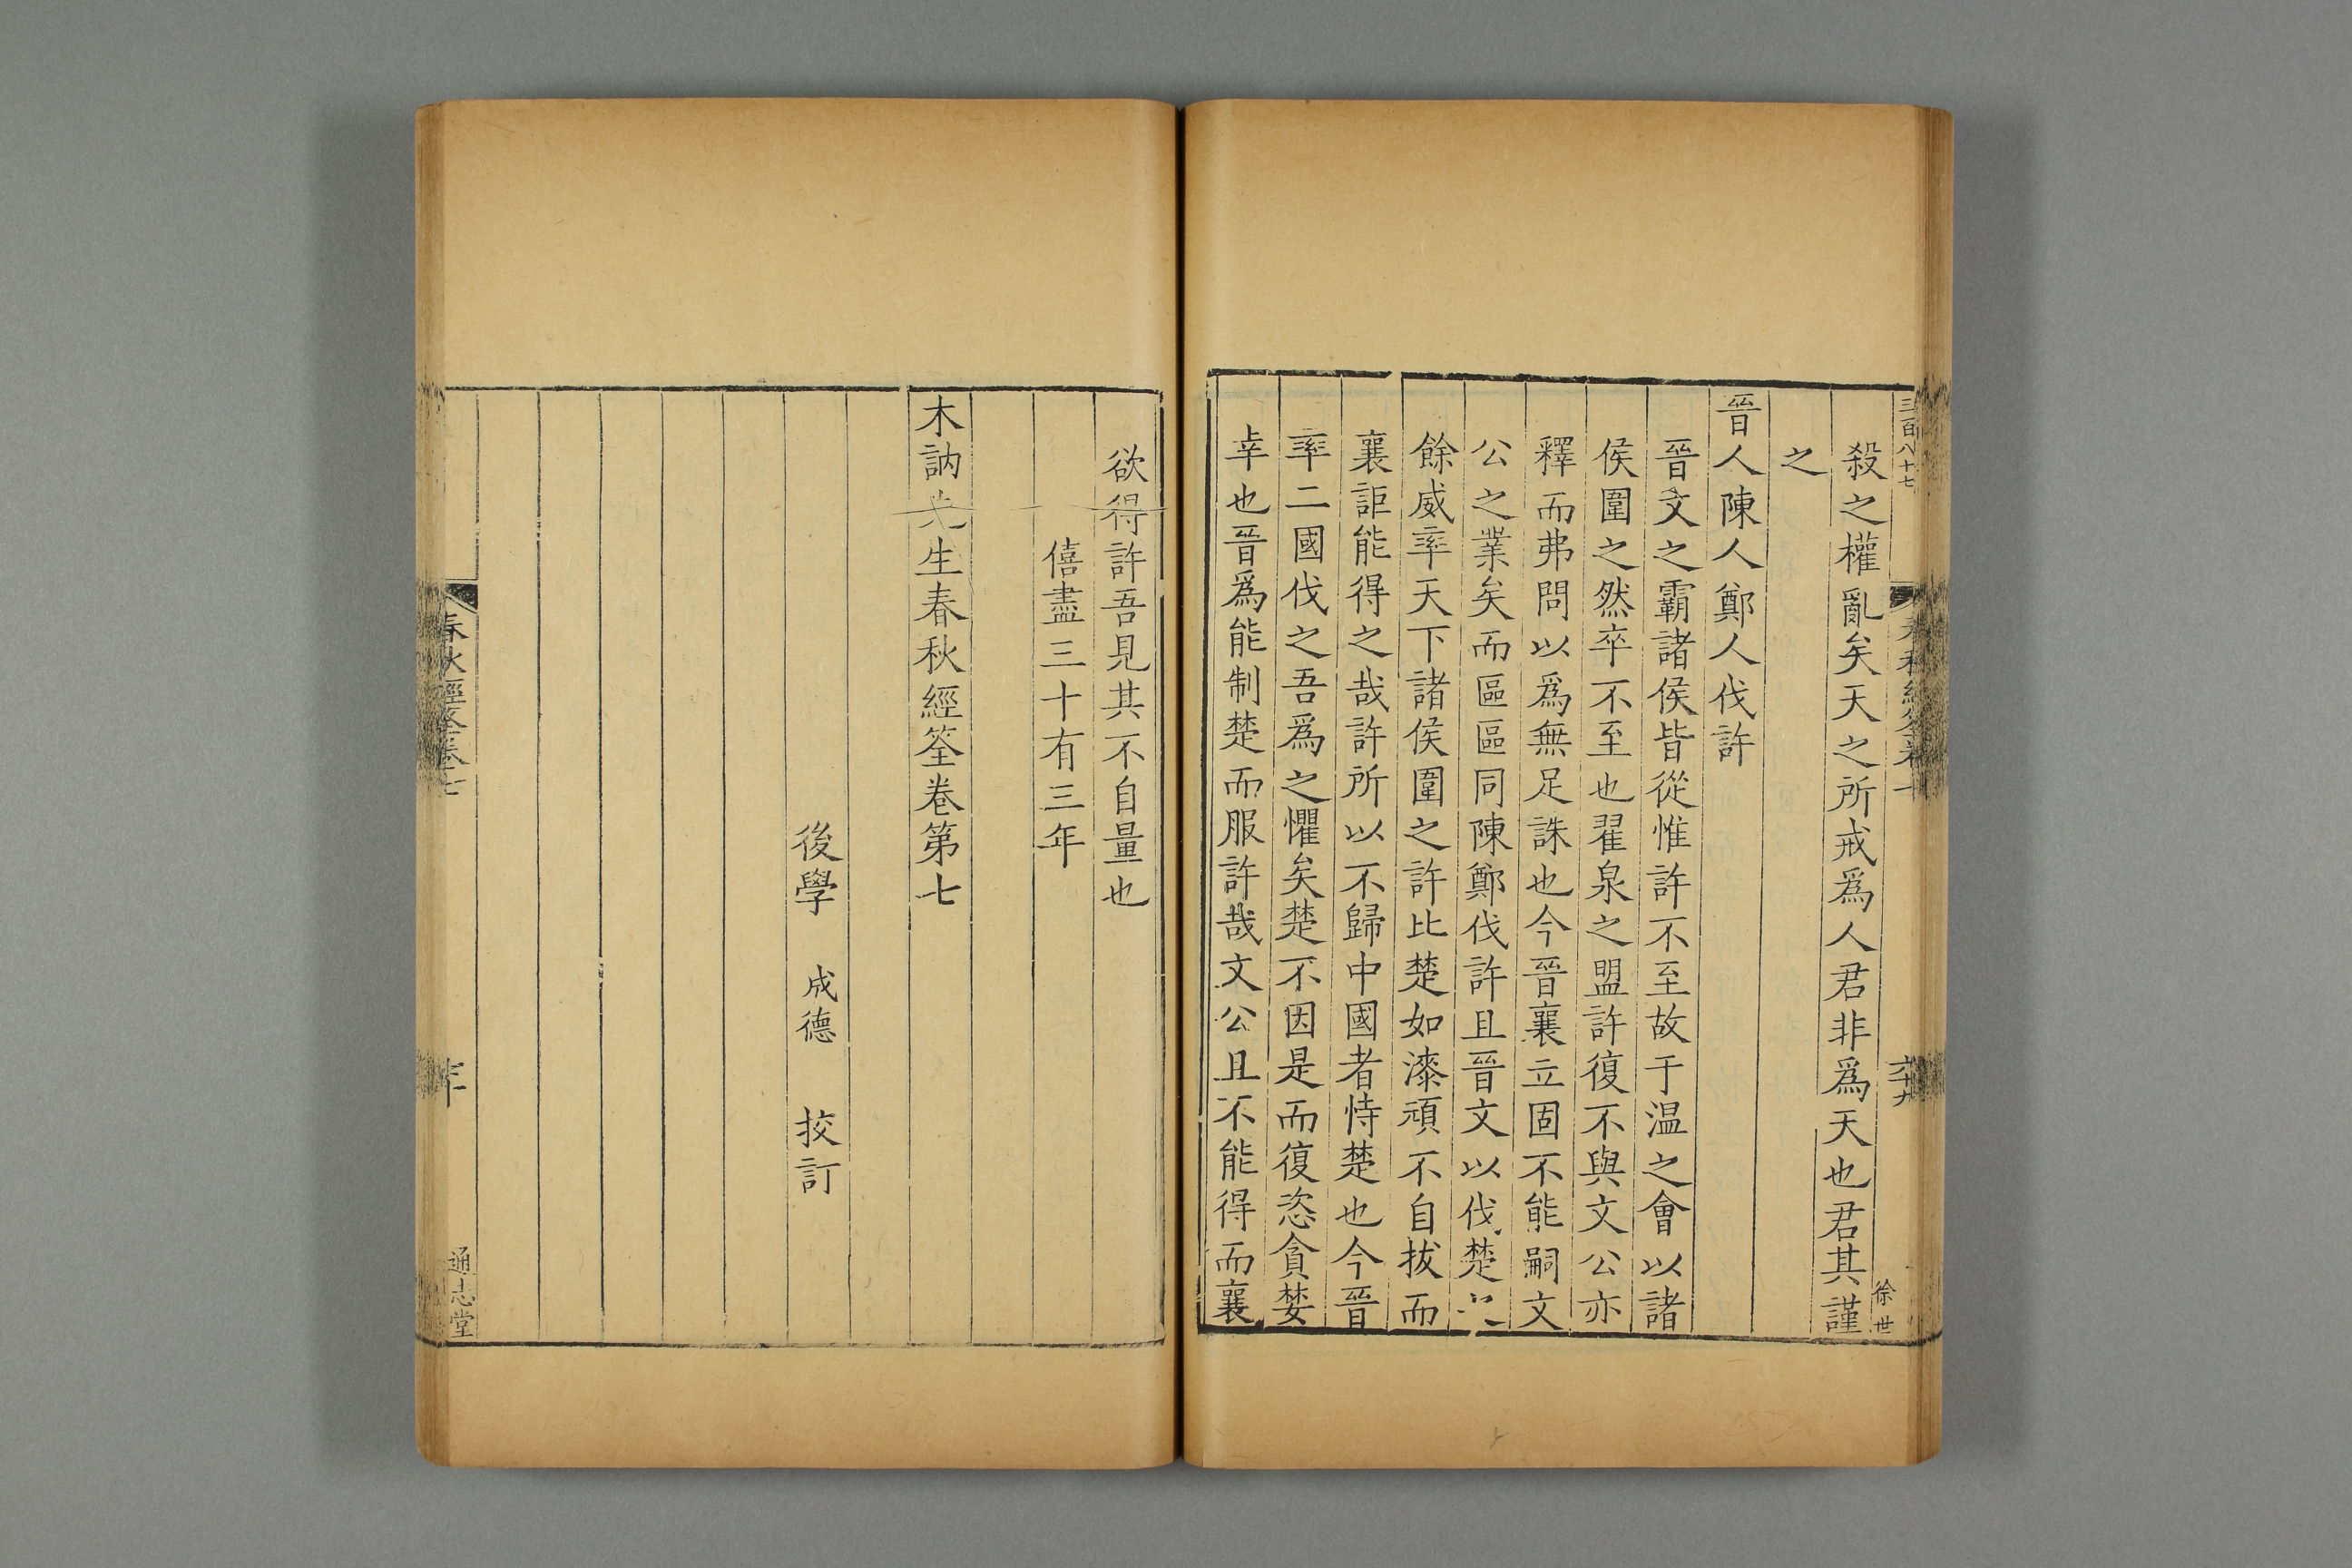 三百八十七
六十九
徐世
殺之權亂矣天之所戒爲人君非爲天也君其謹
之
晉人陳人鄭人伐許
晉文之霸諸侯皆從惟許不至故于温之會以諸
侯圍之然卒不至也翟泉之盟許復不與文公亦
釋而弗問以爲無足誅也今晉襄立固不能嗣文
公之業矣而區區同陳鄭伐許且晉文以伐楚之
餘威率天下諸侯圍之許比楚如漆頑不自拔而
襄詎能得之哉許所以不歸中國者恃楚也今晉
率二國伐之吾爲之懼矣楚不因是而復恣貪婪
幸也晉爲能制楚而服許哉文公且不能得而襄
欲得許吾見其不自量也
僖盡三十有三年
木訥先生春秋經筌卷第七
後學 成德 挍訂
春秋經筌卷七
通志堂